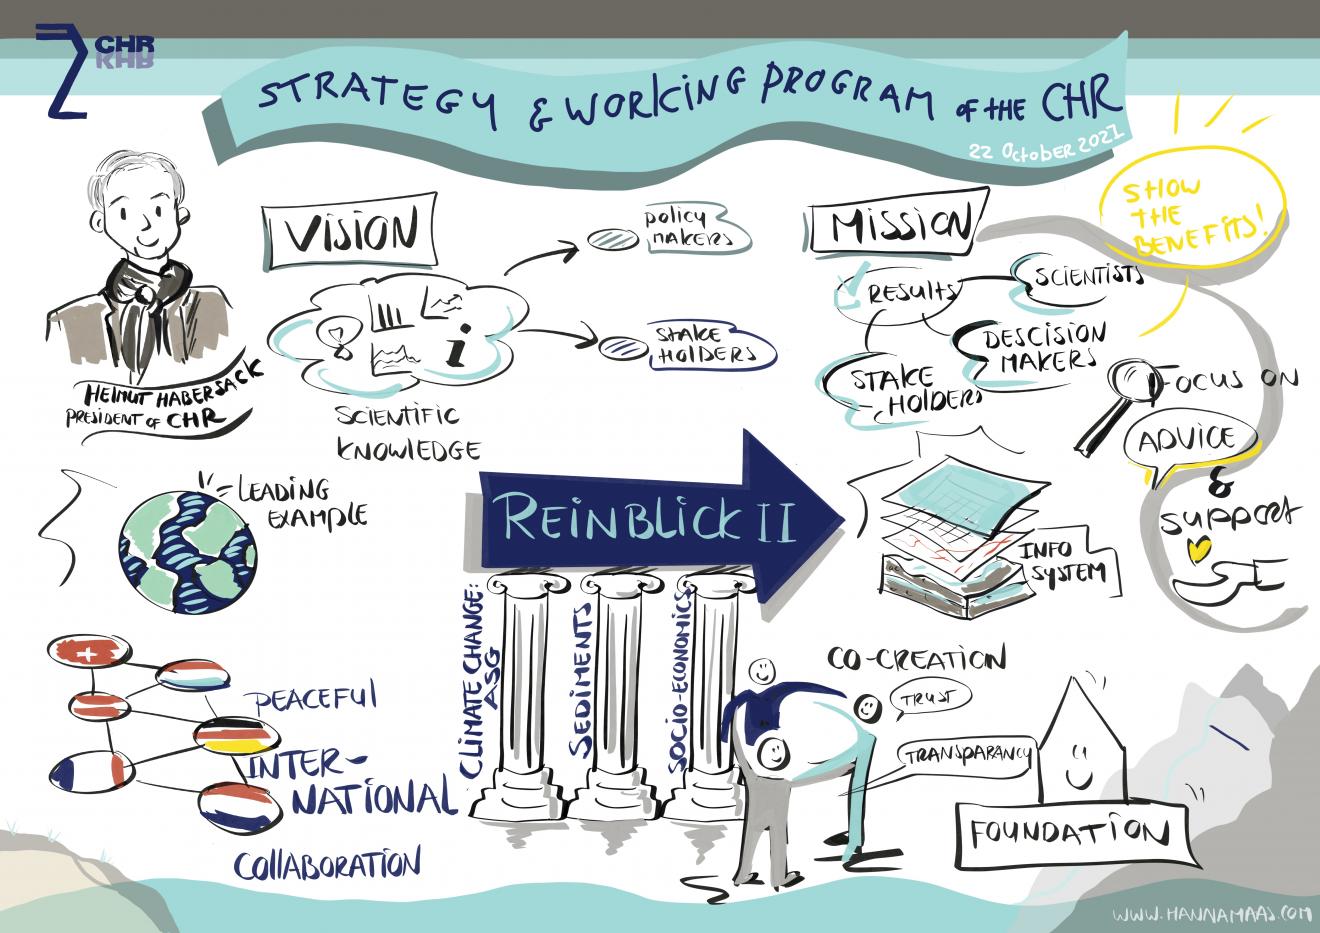 CHR
KHR
STRATEGY & WORKING PROGRAM OF THE CHR
22 October 2021
HELMUT HABERSACK
PRESIDENT OF CHR
VISION
SCIENTIFIC
KNOWLEDGE
POLICY
MAKERS
STAKE
HOLDERS
MISSION
RESULTS
SCIENTISTS
DESCISION
MAKERS
STAKE
HOLDERS
SHOW
THE
BENEFITS!
FOCUS ON
ADVICE
&
SUPPORT
LEADING
EXAMPLE
REINBLICK II
CLIMATE CHANGE:
ASG
SEDIMENTS
SOCIO-ECONOMICS
INFO
SYSTEM
PEACEFUL
INTER-
NATIONAL
COLLABORATION
CO-CREATION
TRUST
TRANSPARANCY
FOUNDATION
WWW.HANNAMAAS.COM